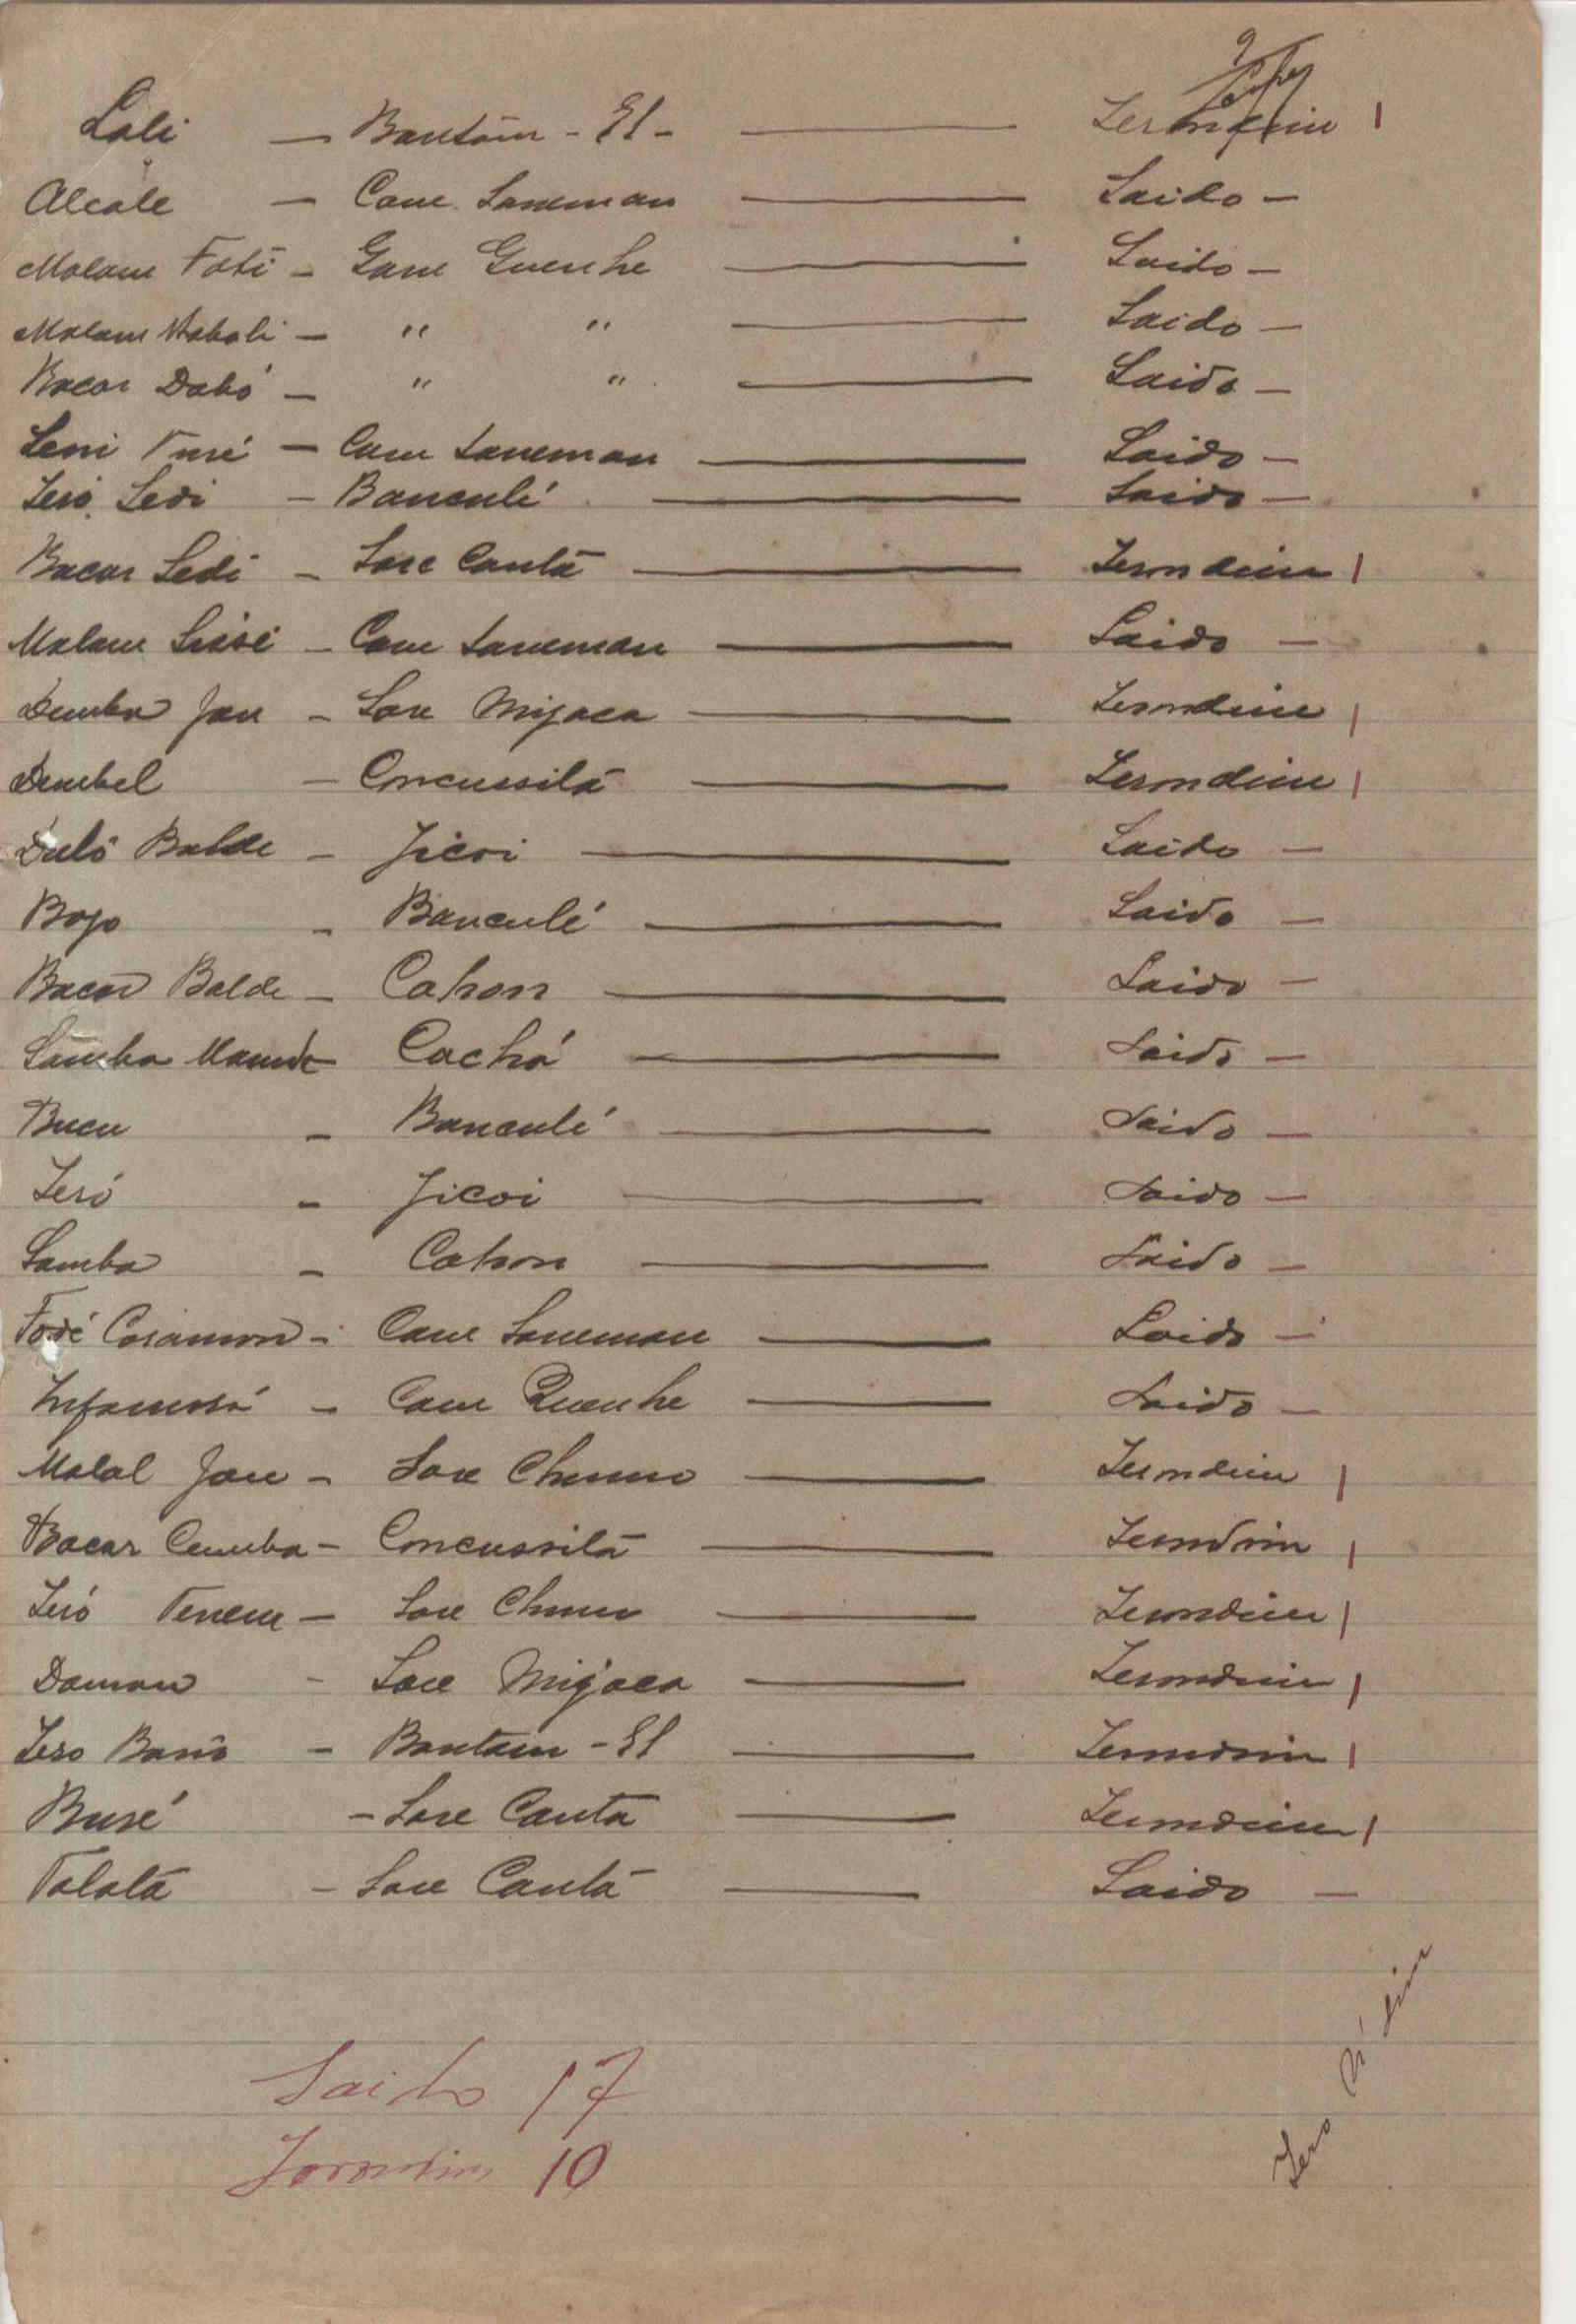 Lali — Bantām - El - — Serondim |
Alcale — Cam Saneman — Saido —
Malam Fati - Gam Guenhe — Saido —
Malam Nabali — " " — Saido —
Bacar Dabó — " " — Saido —
Seni Turé — Cam Saneman — Saido —
Seró Sedi — Banculé — Saido —
Bacar Sedi - Sare Cantā — Serondim |
Malam Sissé - Cam Saneman — Saido —
Demba Jau - Sare Mijaca — Serondim |
Dembel — Concussilā — Serondim |
Duló Balde - Jicoi — Saido —
Bojo - Banculé — Saido —
Bacar Balde - Cahon — Saido —
Samba Mamde Cachá — Saido —
Bucu - Banculé — Saido —
Seró - Jicoi — Saido —
Samba - Cahon — Saido —
Fodé Coiamon - Cam Saneman — Saido —
Infamossá - Cam Quenhe — Saido —
Malal Jau - Sare Chuma — Serondim |
Bacar Cumba - Concussilā — Serondim |
Seró Tenem - Sare Chuma — Serondim |
Daman - Sare Mijaca — Serondim |
Sero Baró - Bantam - El — Serondim |
Buré - Sare Canta — Serondim |
Talatā - Sare Cantā — Saido —
Saido 17
Serondim 10
Sero